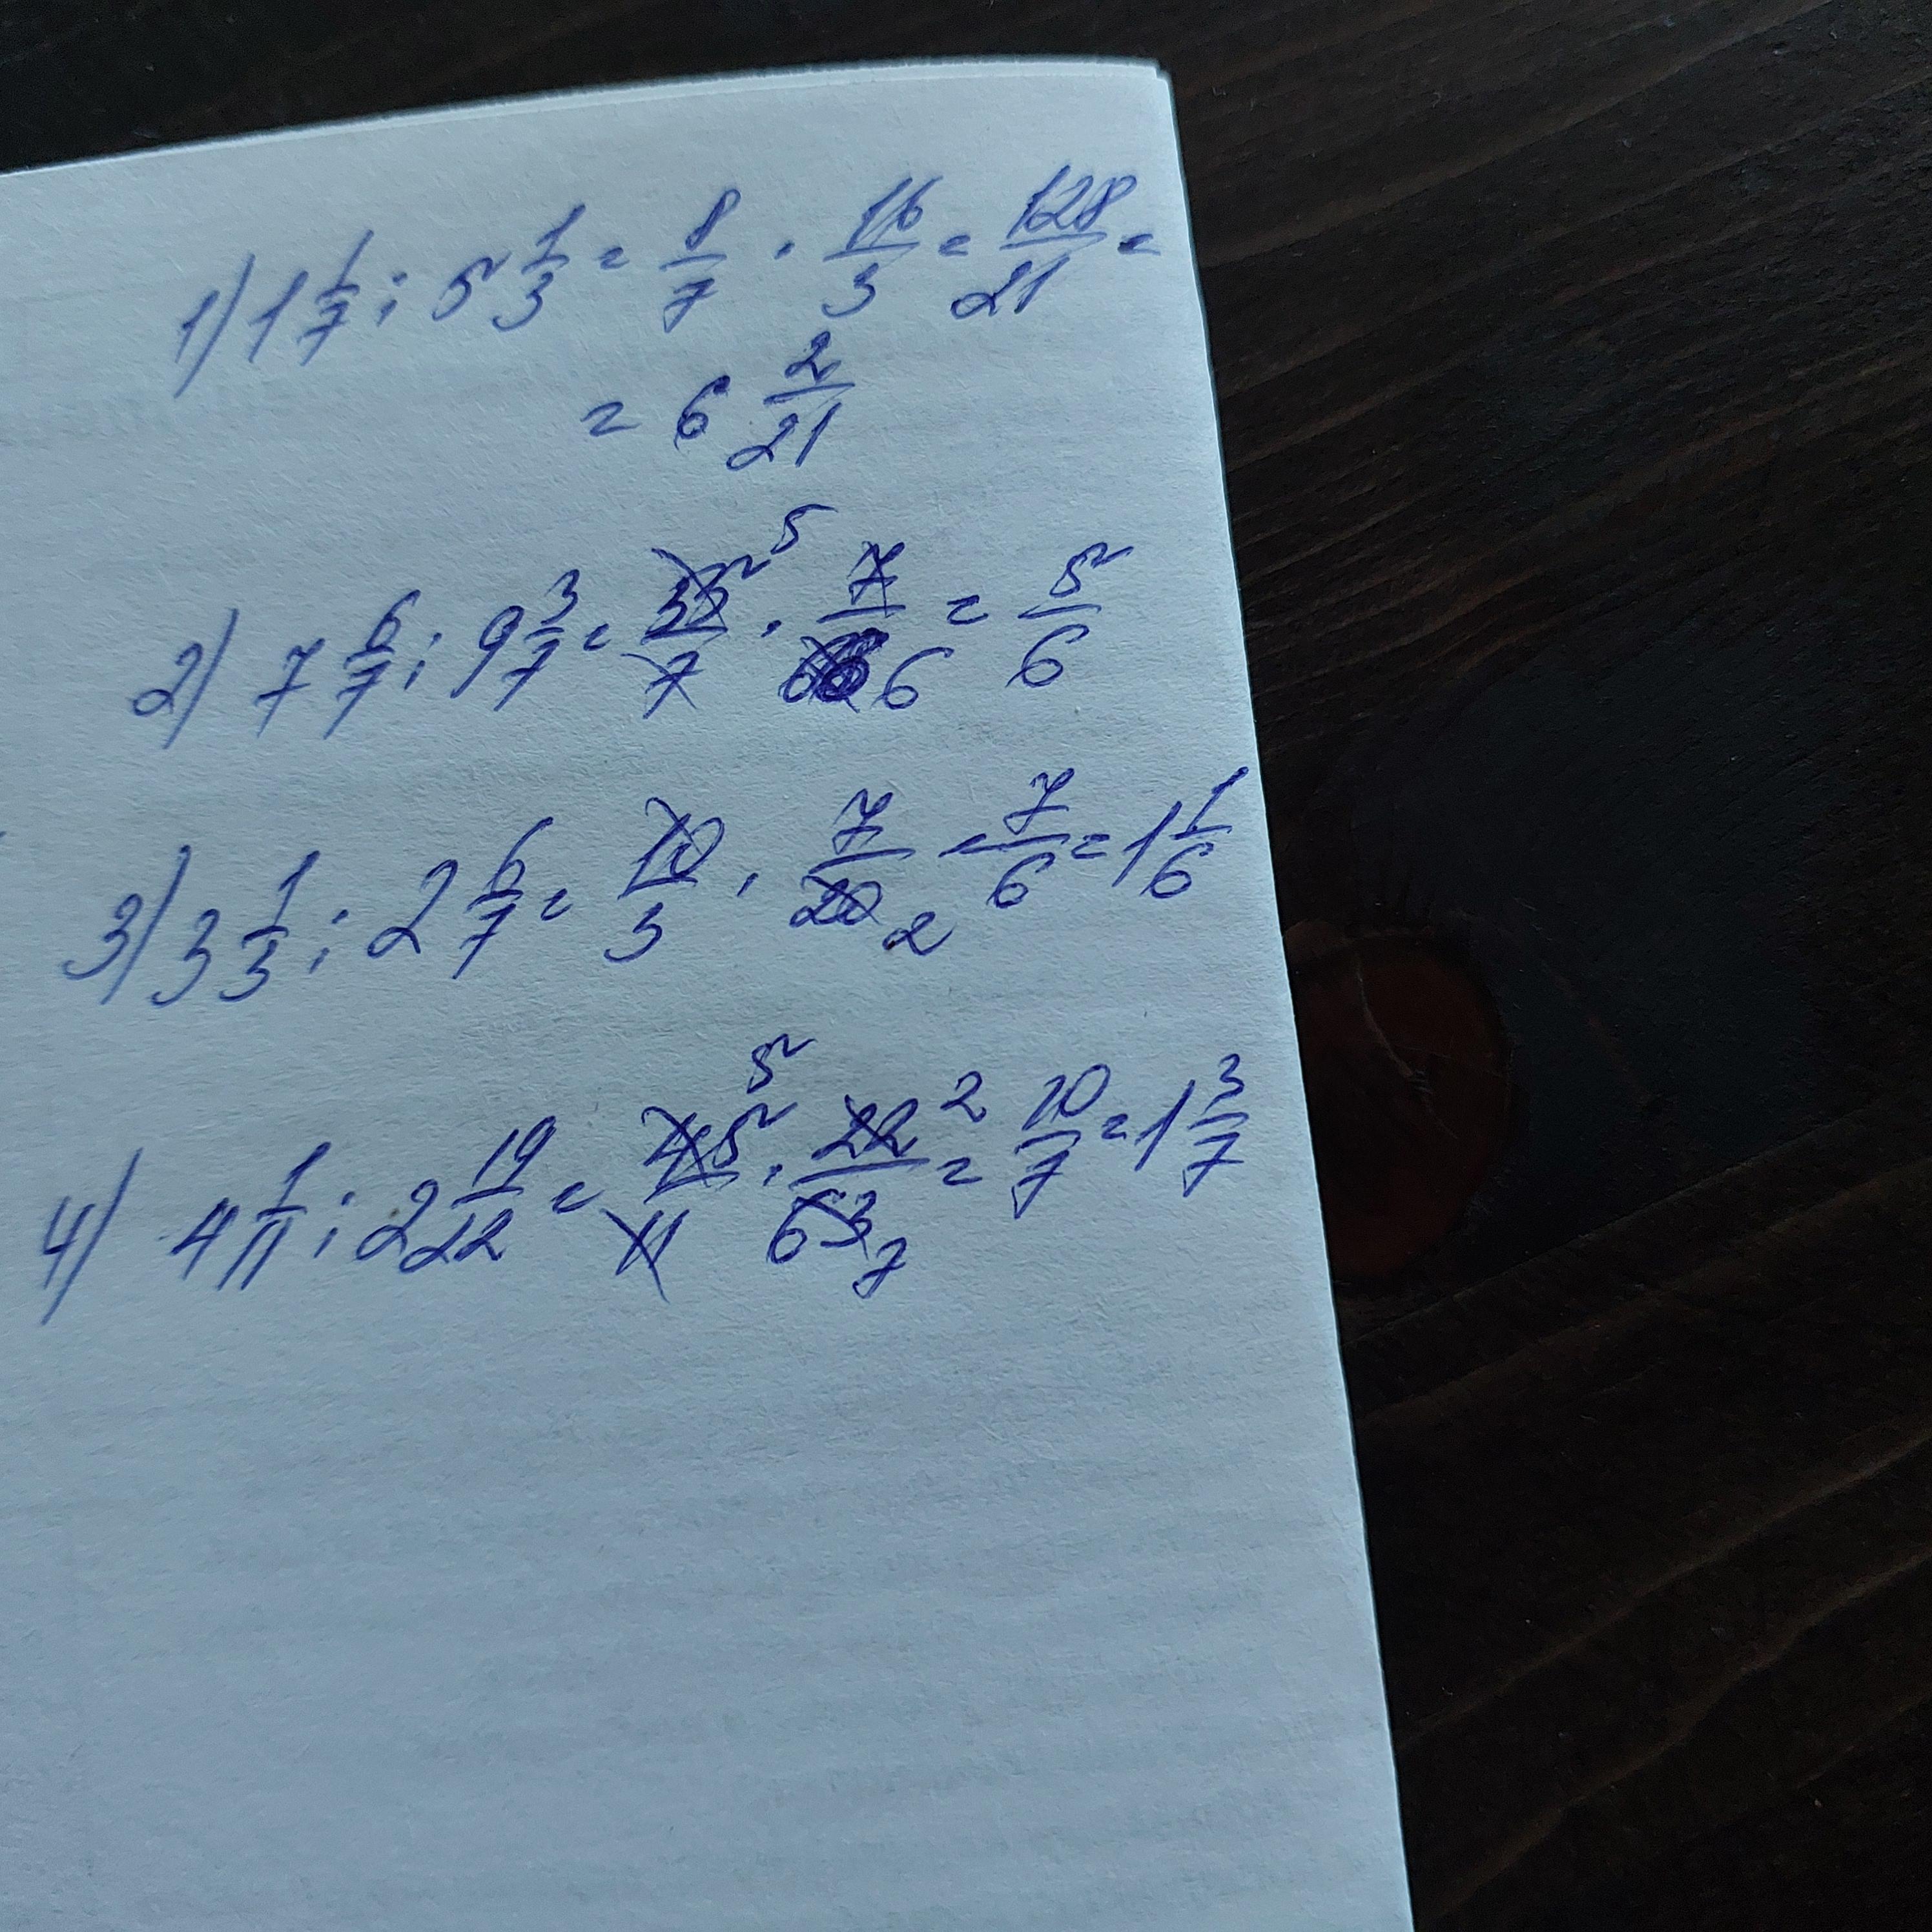 1) 1 1/7 : 5 1/3 = 8/7 · 16/3 = 128/21 =
= 6 2/21
2) 7 6/7 : 9 3/7 = 55/7 · 7/66 = 5/6
5 6
3) 3 1/3 : 2 6/7 = 10/3 · 7/20 = 7/6 = 1 1/6
2
4) 4 1/11 : 2 19/22 = 45/11 · 22/63 = 10/7 = 1 3/7
5 2 7